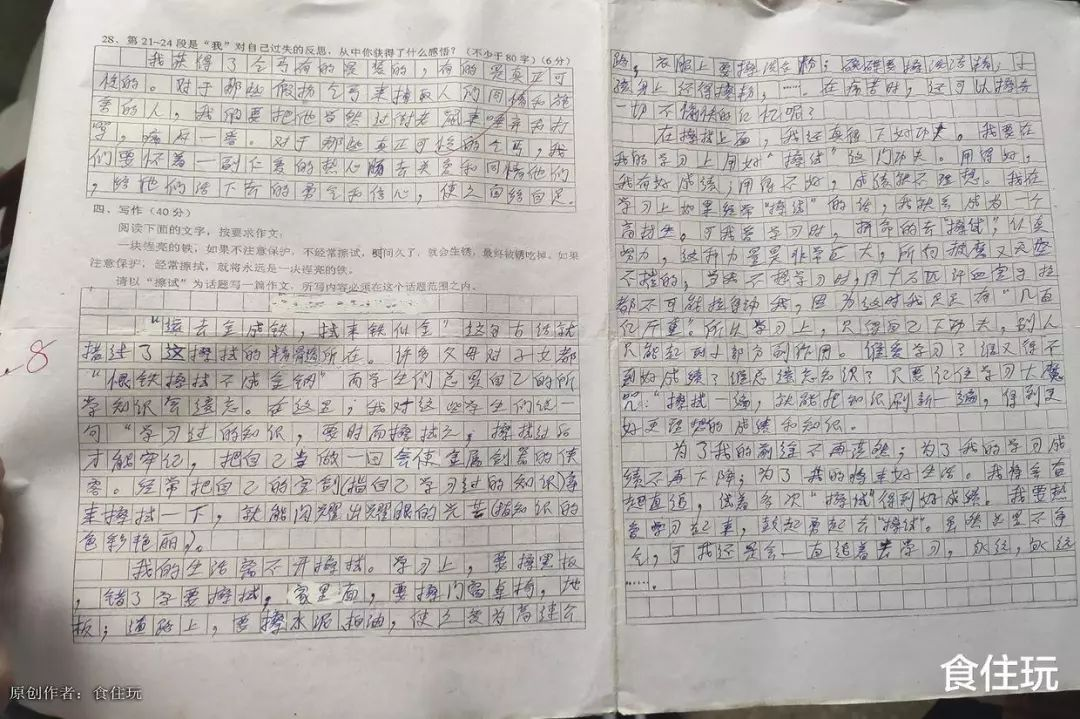 28、第21~24段是“我”对自己过失的反思，从中你获得了什么感悟？（不少于80字）（6分）
我获得了乞丐有的是装的，有的是真正可
怜的。对于那些假扮乞丐来换取人的同情和
的人，我们要把他当
，痛斥一番。对于那些真正可怜的乞丐，我
们要怀着一副仁爱的热心肠去关爱和同情他们
，给他们活下去的勇气和信心，使之自给自足。
四、写作（40分）
阅读下面的文字，按要求作文：
一块锃亮的铁，如果不注意保护，不经常擦试，时间久了，就会生锈，最终被锈吃掉。如果
注意保护，经常擦拭，就将永远是一块锃亮的铁。
请以“擦试”为话题写一篇作文。所写内容必须在这个话题范围之内。
8
“远去金成铁，拭来铁似金”这句古话就
描述了这擦拭的精髓所在。许多父母对子女都
“恨铁擦拭不成金钢”而学生们总是自己的所
学知识会遗忘。在这里；我对这些学生们说一
句“学习过的知识，要时而擦拭之；擦拭过后
才能牢记，把自己当做一回会使金属剑器的侠
客。经常把自己的宝剑（指自己学习过的知识）拿
来擦拭一下，就能闪耀出耀眼的光芒（指知识的
色彩艳丽）。
我的生活离不开擦拭。学习上，要擦黑板
，错了字要擦拭，家里面，要擦门窗桌椅，地
板；道路上，要擦水泥、柏油，使之变为高速公
路，衣服上要擦洗衣粉；碗碟要擦洗洁粉，小
孩身上还得擦粉，……。在痛苦时，还可以擦去
一切不愉快的记忆呢？
在擦拭上面，我还真得下好功夫。我要在
我的学习上用好“擦拭”这门功夫。用得好，
我有好成绩；用得不好，成绩就不理想。我在
学习上如果经常“擦拭”的话，我就会成为一个
高材生。可我爱学习时，拼命的去“擦拭”，认真
努力，这种力量是非常巨大，所向披靡又无坚
不摧的，当我不想学习时，用十万匹汗血宝马拉
都不可能拉得动我，因为这时我足足有“几百
亿斤重”。所以学习上，只得自己下功夫，别人
只能起到小部分副作用。谁爱学习了谁又得不
到好成绩了谁总遗忘知识了只要记住学习大魔
咒：“擦拭一遍，就能把知识刷新一遍，得到更
好更理想的成绩和知识。
为了我的前途不再茫然；为了我的学习成
绩不再下降；为了我的将来好生活。我得全
追，试着多次“擦拭”得到好成绩。我要热
爱学习起来，鼓起勇起去“擦拭”。虽然总是不争
气，可我还是会一直追着去学习，永远，永远
……。
原创作者：食住玩
食住玩